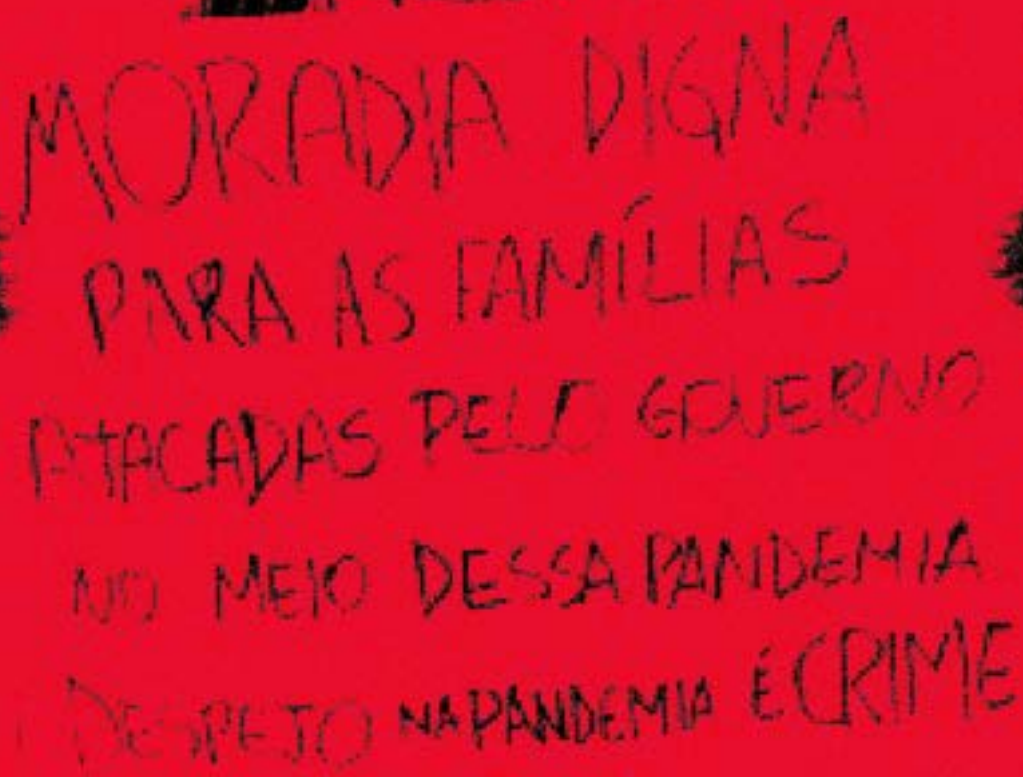 MORADIA DIGNA
PARA AS FAMÍLIAS
ATACADAS PELO GOVERNO
NO MEIO DESSA PANDEMIA
DESPEJO NA PANDEMIA É CRIME